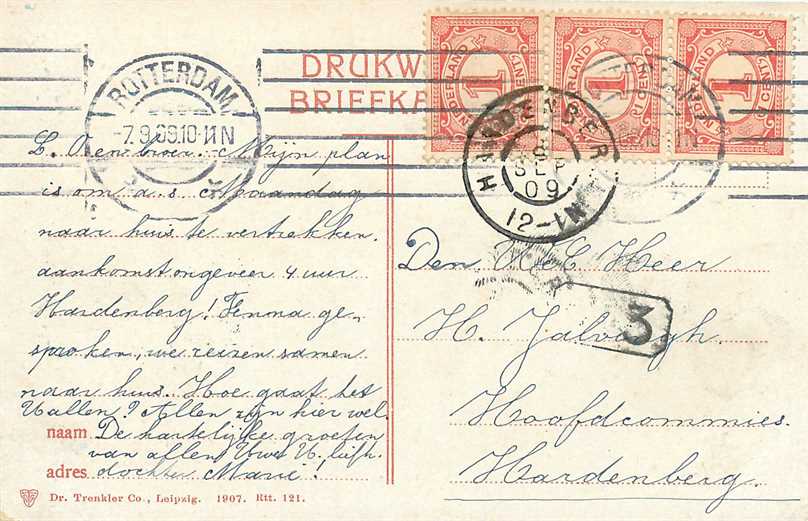 DRUKW
BRIEFKA
NEDERLAND 1 CENT
NEDERLAND 1 CENT
NEDERLAND 1 CENT
ROTTERDAM
-7.9.09.10-11N
HARDENBERG
8 SEP 09
12-1N
3
L. Oen broer. Mijn plan
is om a.s. Maandag
naar huis te vertrekken.
aankomst ongeveer 4 uur
Hardenberg! Femma ge-
sproken, we reizen samen
naar huis. Hoe gaat het
U allen? Allen zijn hier wel.
naam De hartelijke groeten
van allen, Uwe U. liefh.
adres dochter Marie!
Den Heer
H. Jalvingh.
Hoofdcommies.
Hardenberg.
Dr. Trenkler Co., Leipzig. 1907. Rtt. 121.